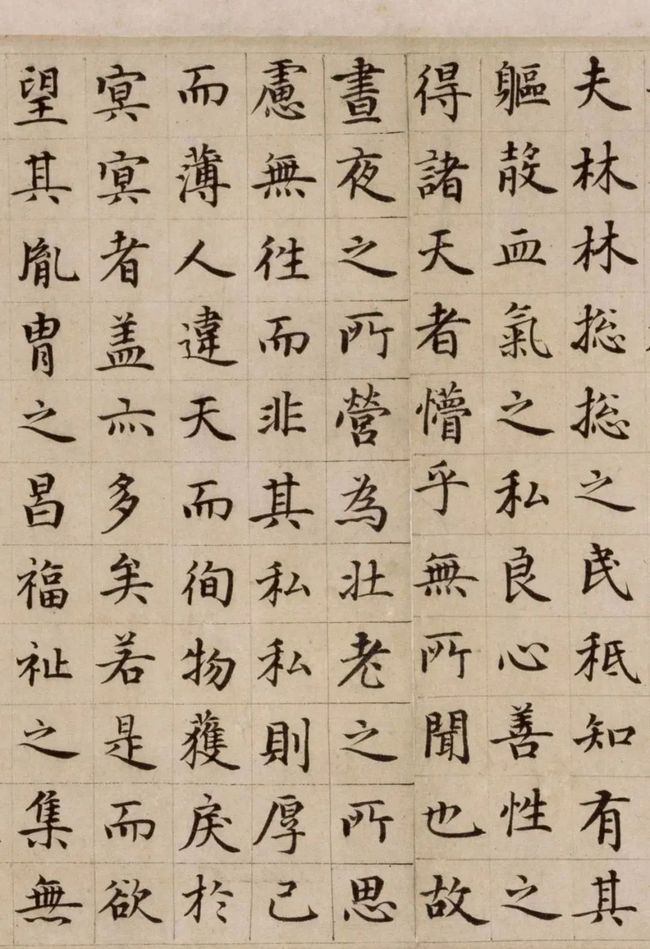 夫林林捴捴之民秪知有其
軀殼血氣之私良心善性之
得諸天者懵乎無所聞也故
晝夜之所營為壯老之所思
慮無徃而非其私私則厚己
而薄人違天而徇物獲戾於
冥冥者盖亦多矣若是而欲
望其胤胄之昌福祉之集無